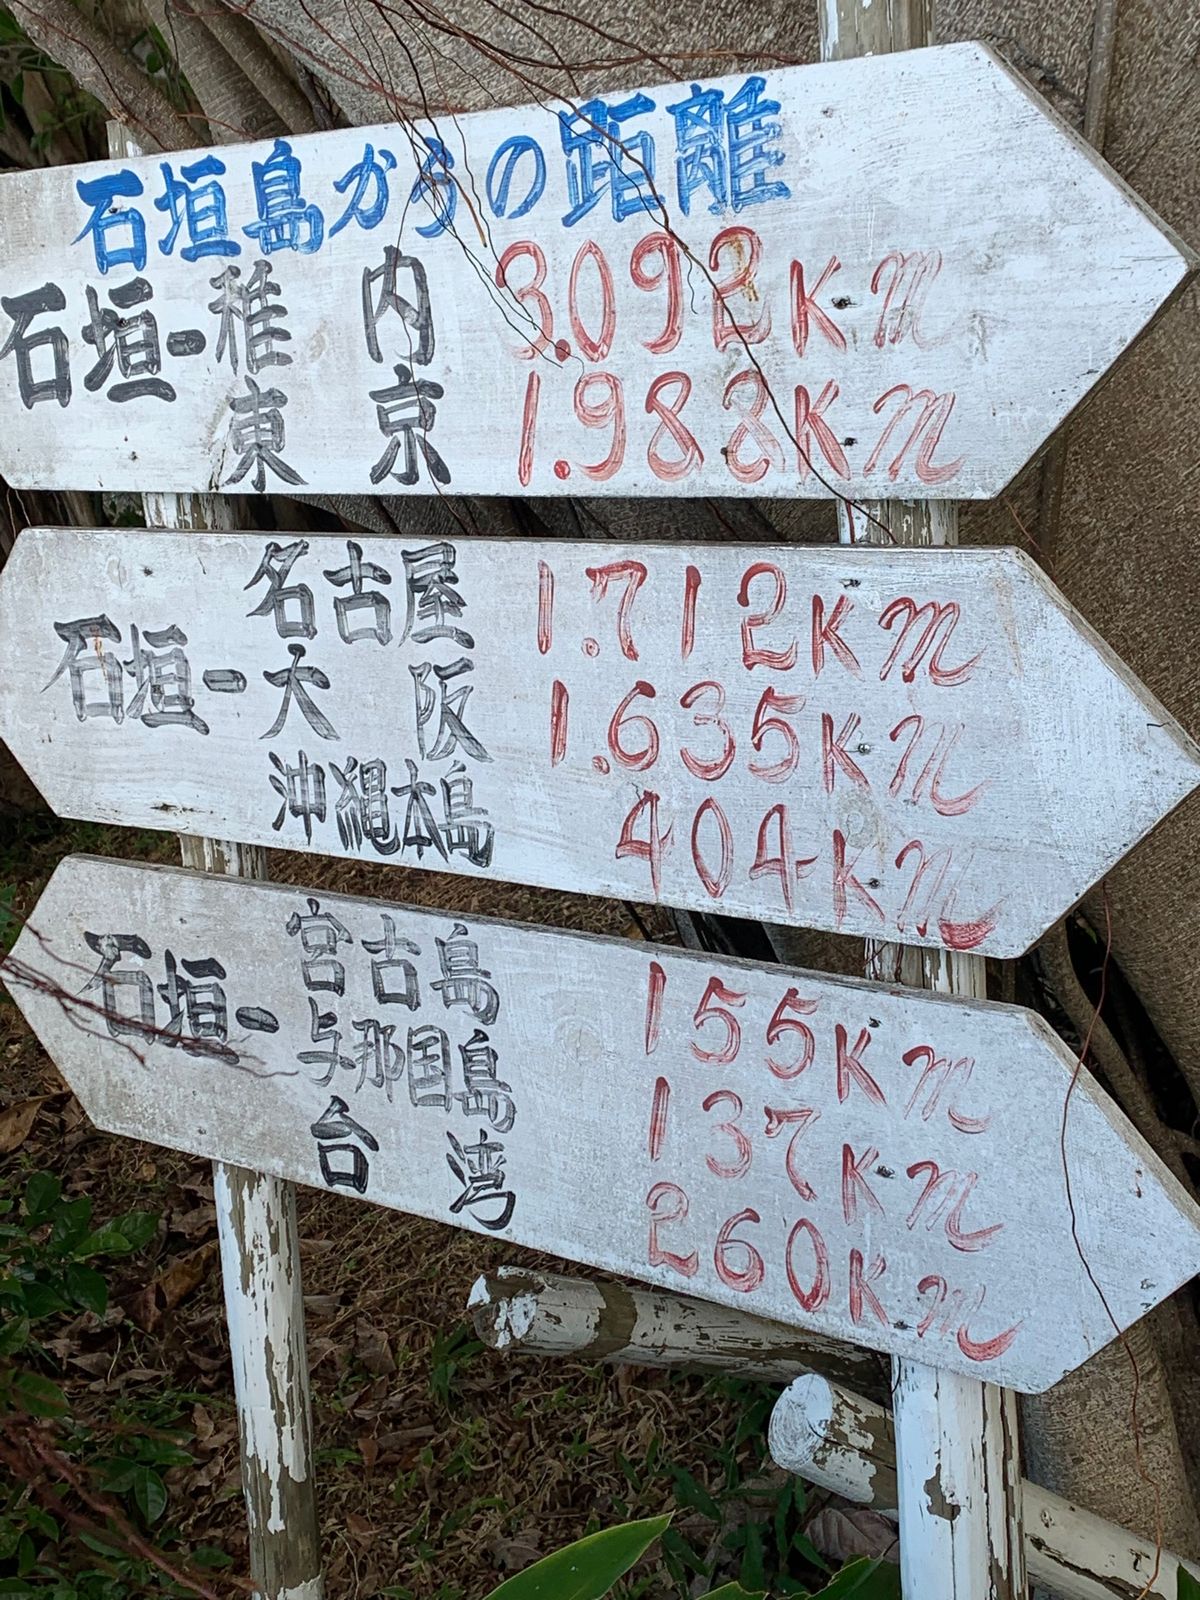 石垣島からの距離
石垣-稚内 3.092Km
東京 1.988Km
名古屋 1.712Km
石垣-大阪 1.635Km
沖縄本島 404Km
宮古島 155Km
石垣-与那国島 137Km
台湾 260Km